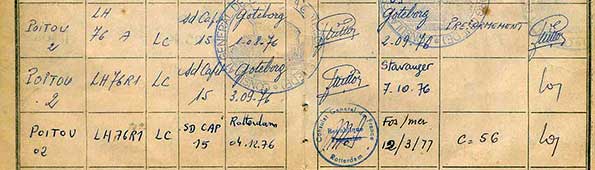 POITOU
2
LH
76 A
LC
Sd Cap
15
Goteborg
1.08.76
Goteborg
2.09.76
PREFOREMENT
POITOU
2
LH76R1
LC
Sd Cap
15
Goteborg
3.09.76
Stavanger
7.10.76
POITOU
02
LH76R1
LC
SD CAP
15
Rotterdam
04.12.76
Consulat General de France
Rotterdam
Fos/mer
12/3/77
C=56